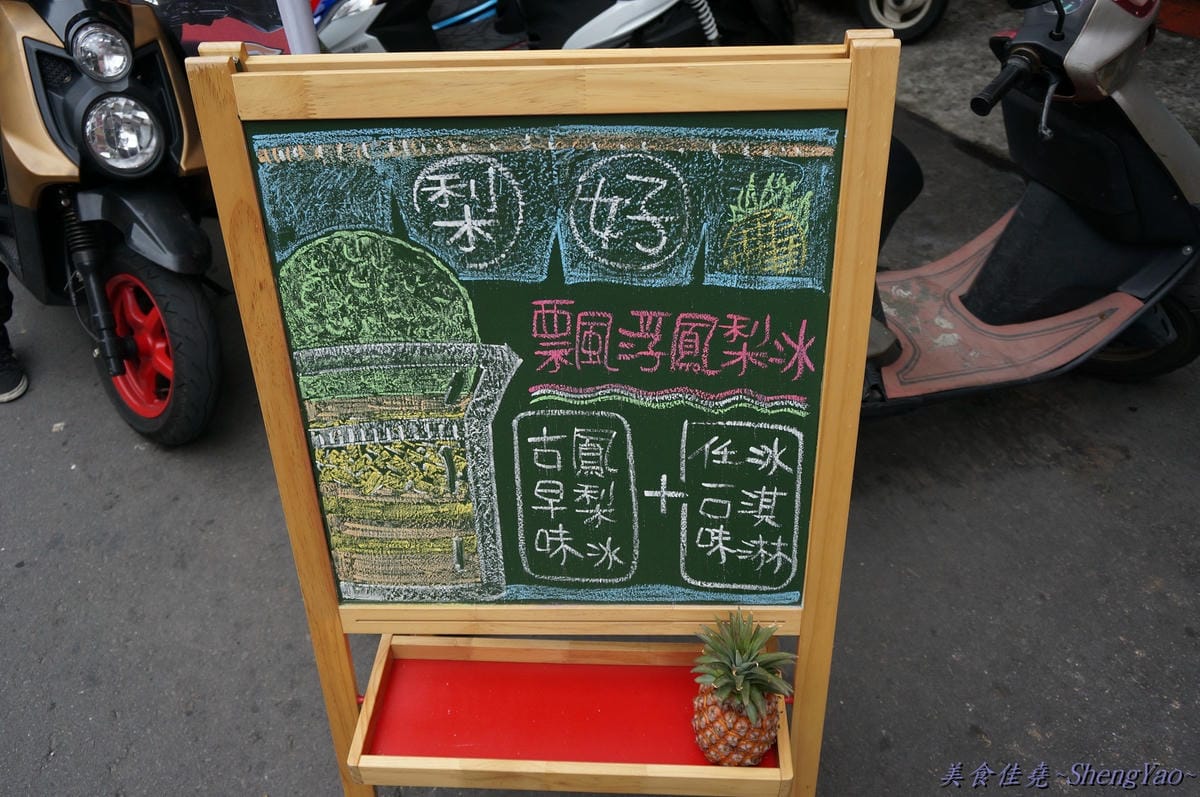 梨好
飄浮鳳梨冰
古早味
鳳梨冰
+
任一口味
冰淇淋
美食佳堯~ShengYao~